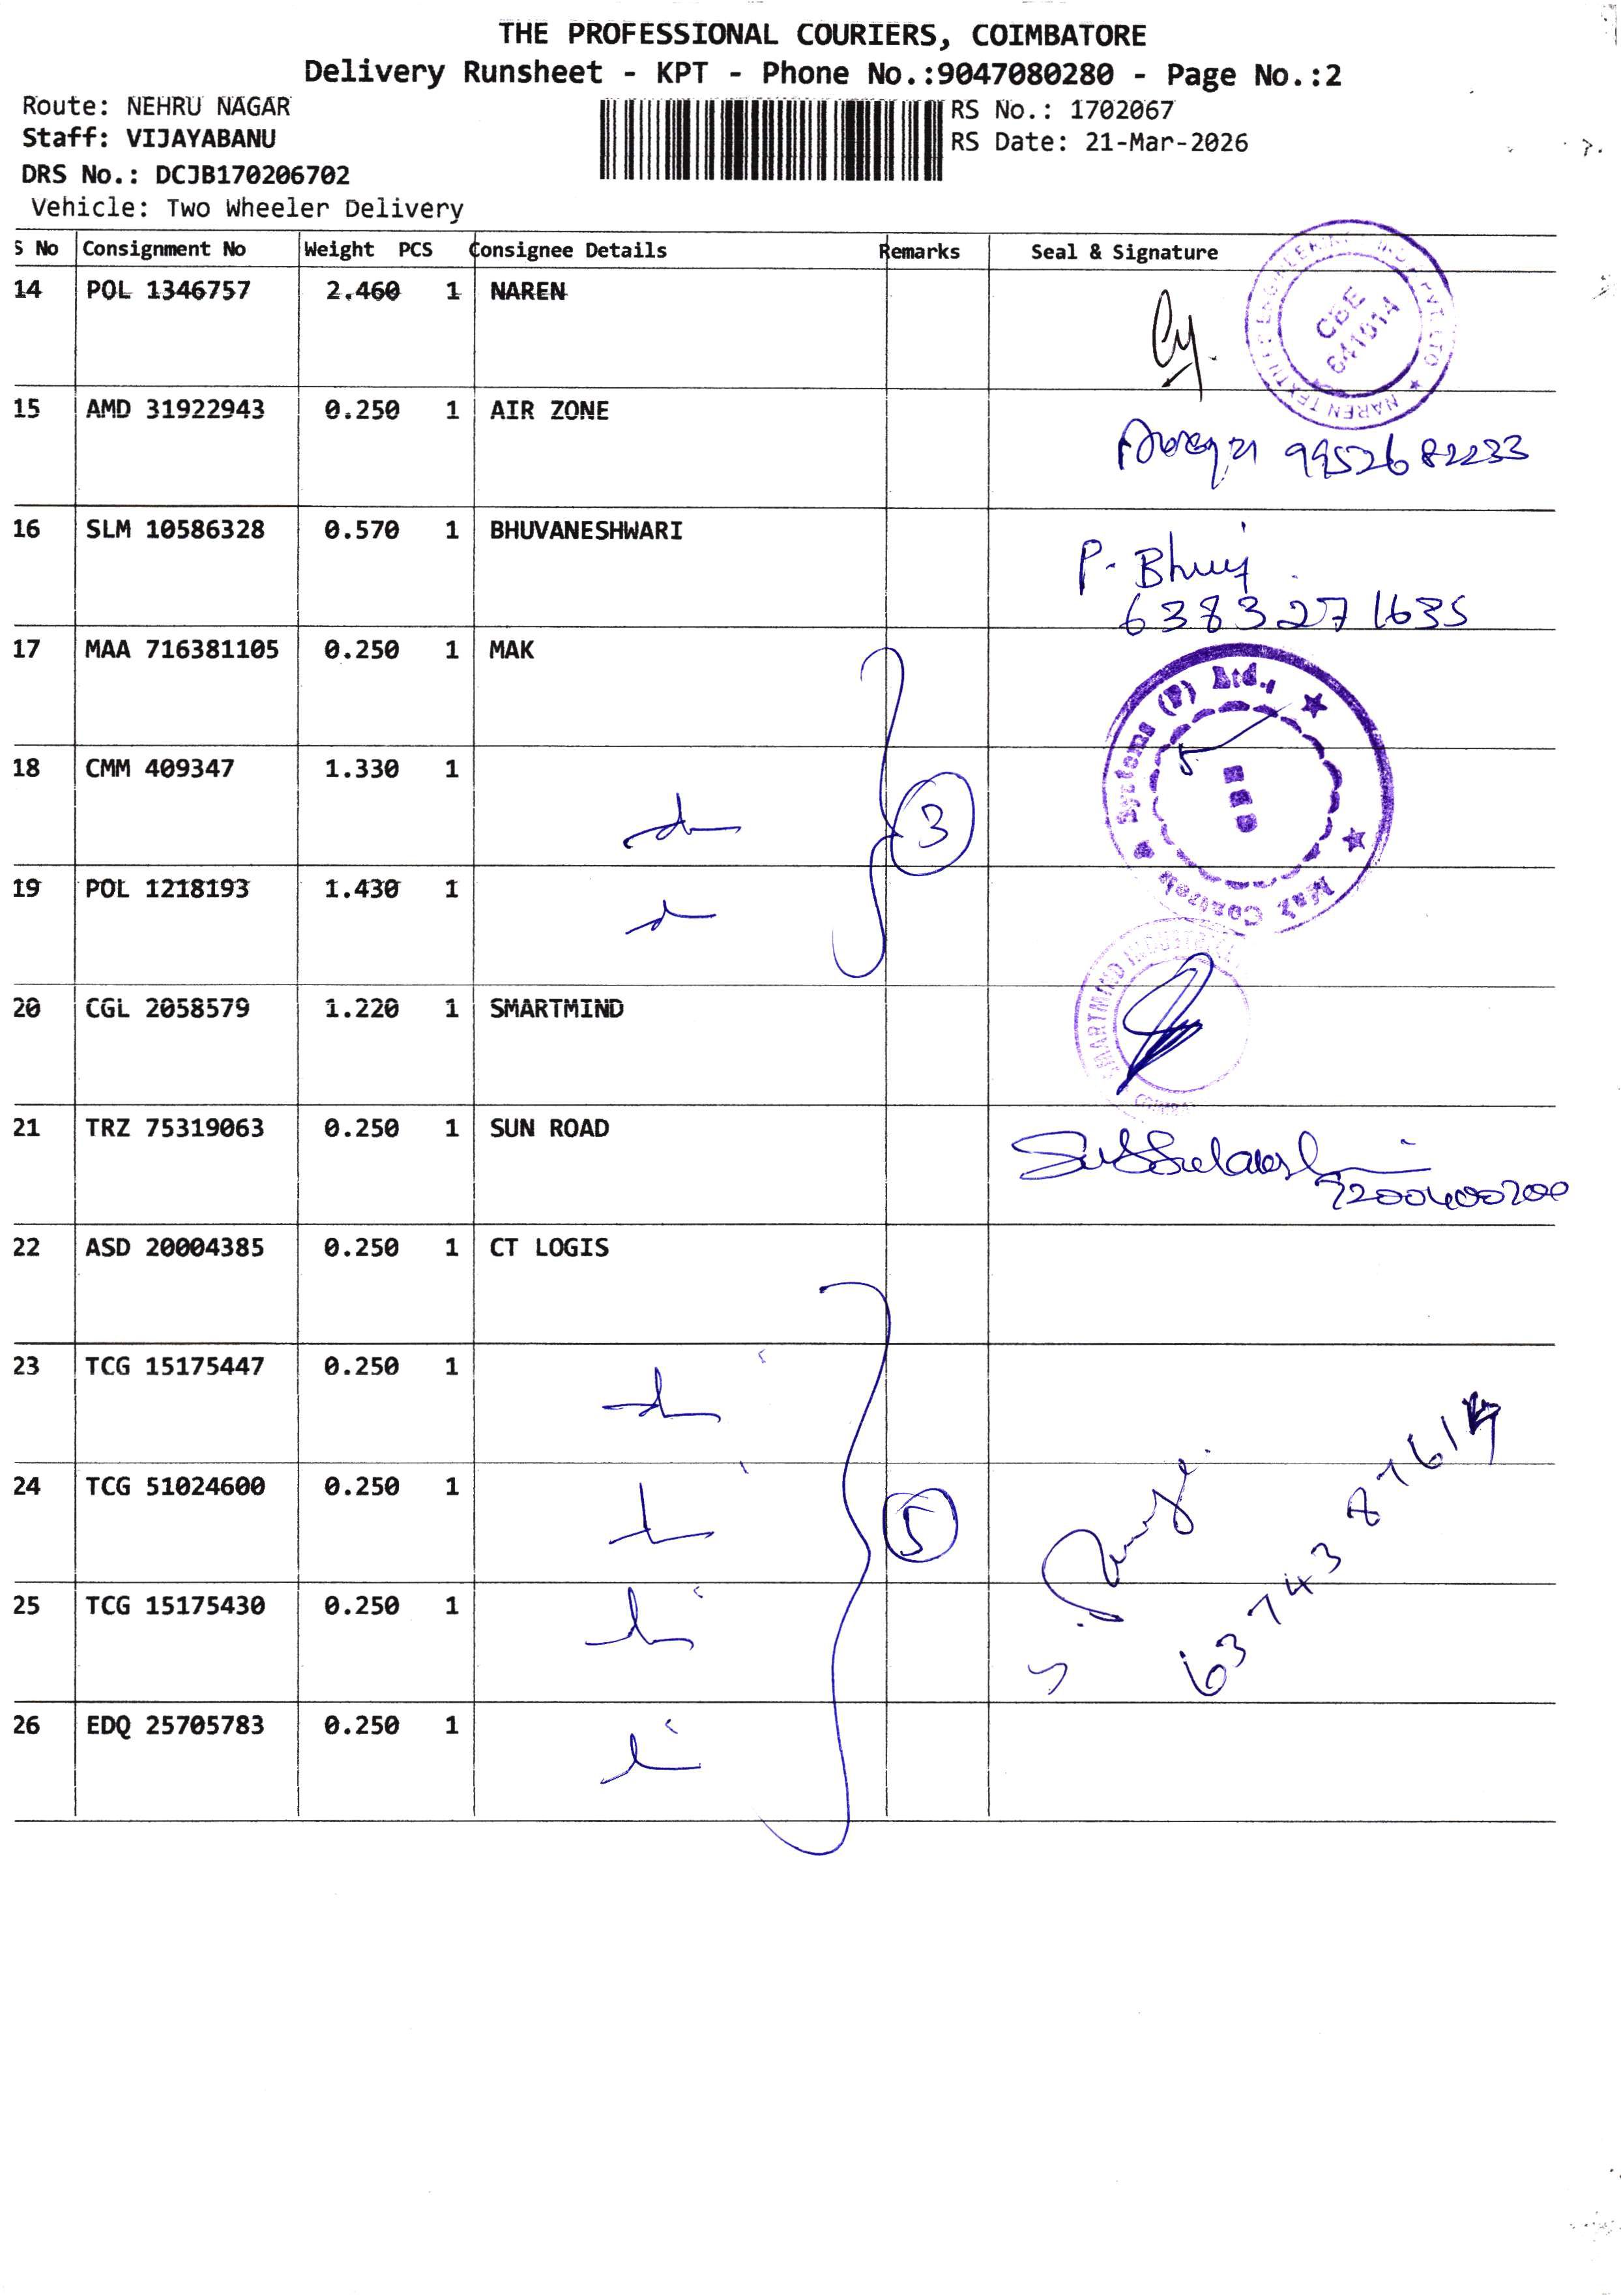 THE PROFESSIONAL COURIERS, COIMBATORE
Delivery Runsheet - KPT - Phone No.:9047080280 - Page No.:2
Route: NEHRU NAGAR
Staff: VIJAYABANU
DRS No.: DCJB170206702
Vehicle: Two Wheeler Delivery
RS No.: 1702067
RS Date: 21-Mar-2026
S No Consignment No Weight PCS Consignee Details Remarks Seal & Signature
14 POL 1346757 2.460 1 NAREN
CBE
641014
15 AMD 31922943 0.250 1 AIR ZONE
9952682233
16 SLM 10586328 0.570 1 BHUVANESHWARI
P. Bhuvi
6383271635
17 MAA 716381105 0.250 1 MAK
Systems (P) Ltd.,
Mak Controls
18 CMM 409347 1.330 1
3
19 POL 1218193 1.430 1
20 CGL 2058579 1.220 1 SMARTMIND
SMARTMIND INDUSTRIAL
21 TRZ 75319063 0.250 1 SUN ROAD
22 ASD 20004385 0.250 1 CT LOGIS
23 TCG 15175447 0.250 1
24 TCG 51024600 0.250 1
5
25 TCG 15175430 0.250 1
26 EDQ 25705783 0.250 1